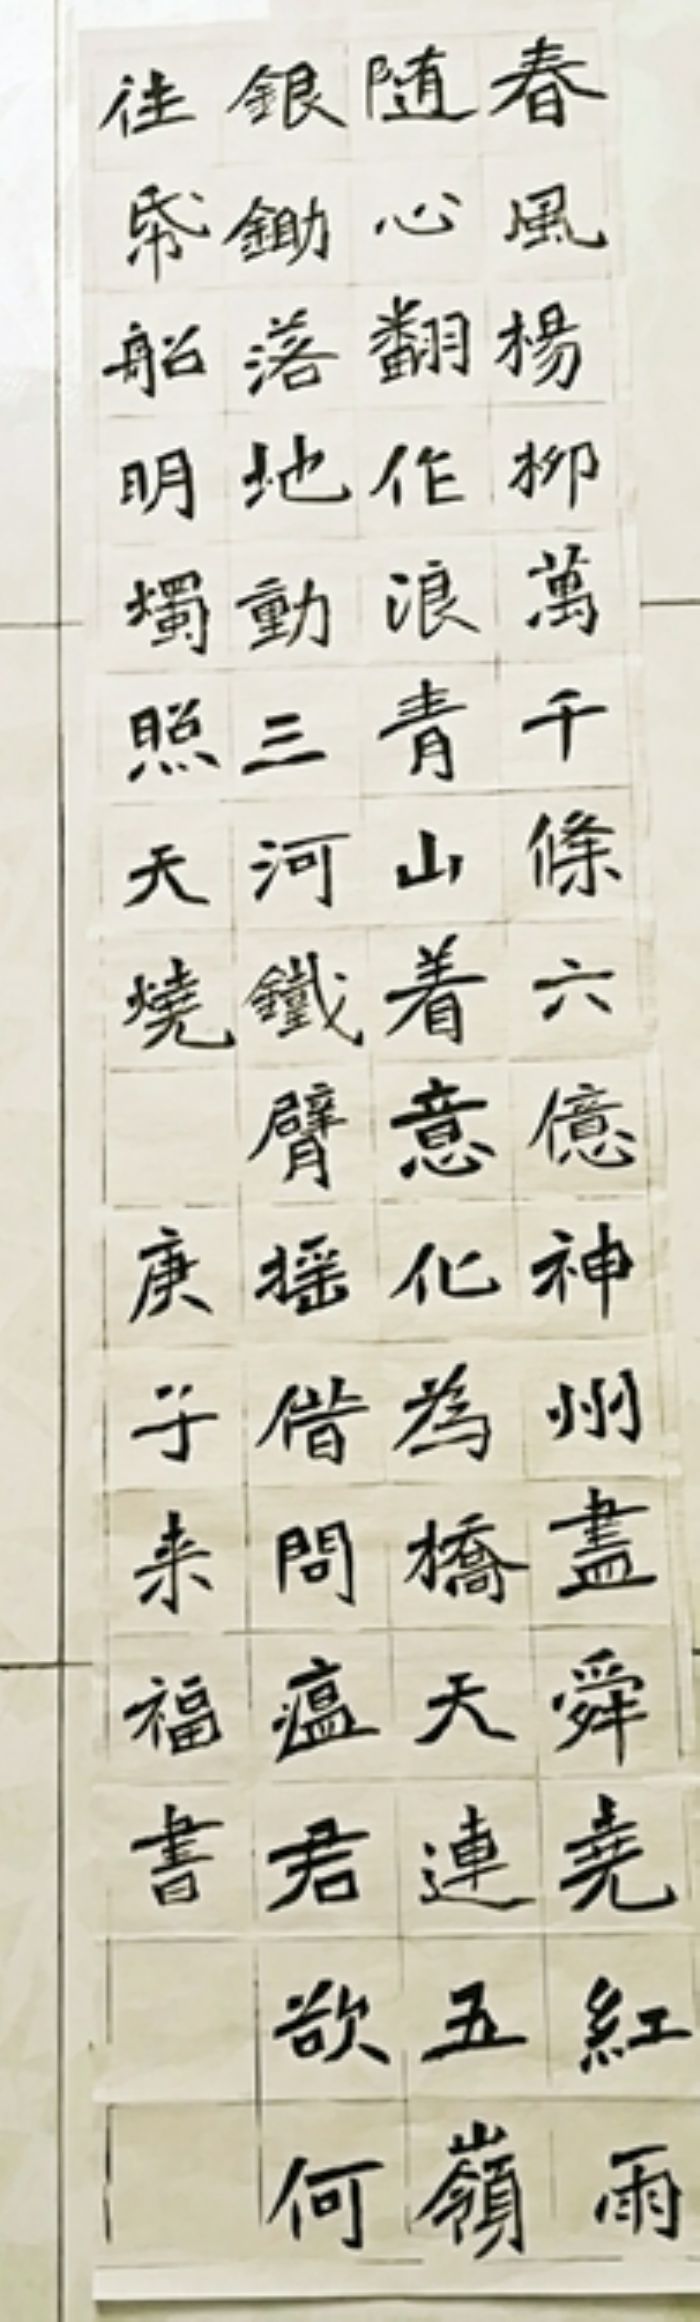 春風楊柳萬千條六億神州盡舜堯紅雨
随心翻作浪青山着意化為橋天連五嶺
銀鋤落地動三河鐵臂摇借問瘟君欲何
往帋船明燭照天燒 庚子来福書